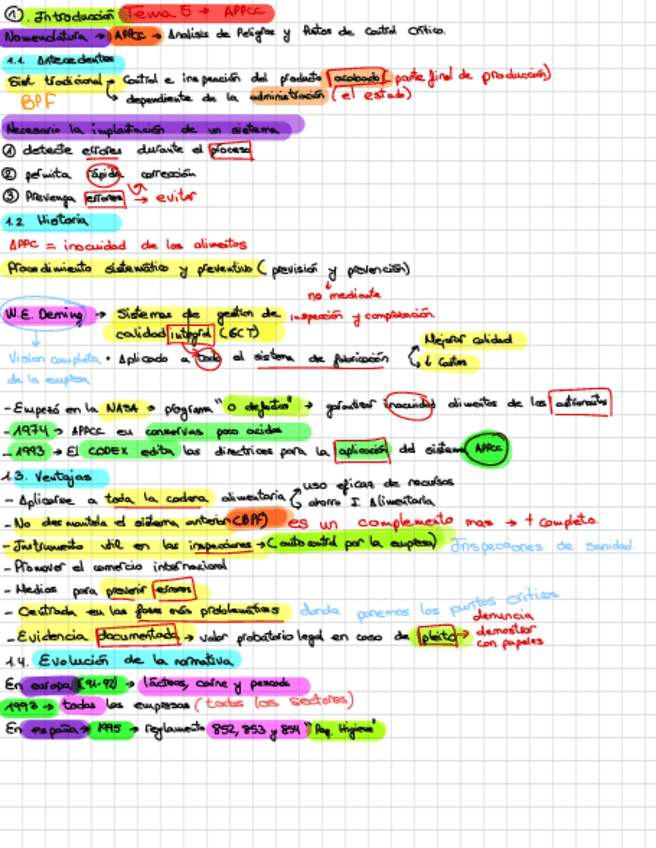 ①. Introducción Tema 5 → APPCC
Nomenclatura → APPCC → Analisis de Peligros y Putos de Control Critico.
1.1. Antecedentes
Sist tradicional → Control e inspanción del producto acabado (parte final de producción)
BPF ↳ dependiente de la administración (el estado)
Necesario la implantación de un sistema
① detecte errores durante el proceso
② permita rápida corrección
③ Prevenga errores → evitar
1.2. Historia
APPC = inocuidad de los alimentos
Procedimiento sistemático y preventivo (previsión y prevención)
no mediante
inspección y comprobación.
W.E. Deming → Sistemas de gestion de
calidad integral (GCT)
Mejorar calidad
Vision completa • Aplicado a todo el sistema de fabricación
↓ Costes
de la empresa
- Empezó en la NASA → programa "0 defectos" → garantizar inocuidad alimentos de los astronautas
- 1974 → APPCC en conservas poco acidas
- 1993 → El CODEX edita las directrices para la aplicación del sistema APPCC
1.3. Ventajas
- Aplicarse a toda la cadena alimentaria
uso eficaz de recursos
ahorro I. Alimentaria
- No desmantela el sistema anterior (BPF) es un complemento mas → + completo
- Instrumento útil en las inspecciones → (autocontrol por la empresa) Inspecciones de sanidad.
- Promover el comercio internacional
- Medios para prevenir errores
- Centrada en las fases más problemáticas donde ponemos los puntos criticos
- Evidencia documentada → valor probatorio legal en caso de pleito →
denuncia
demostrar
con papeles
1.4. Evolución de la normativa
En europa (91-92) → lácteos, carne y pescado
1993 → todas las empresas (todos los sectores)
En españa → 1995 → reglamento 852, 853 y 854 "Paq. Higiene"